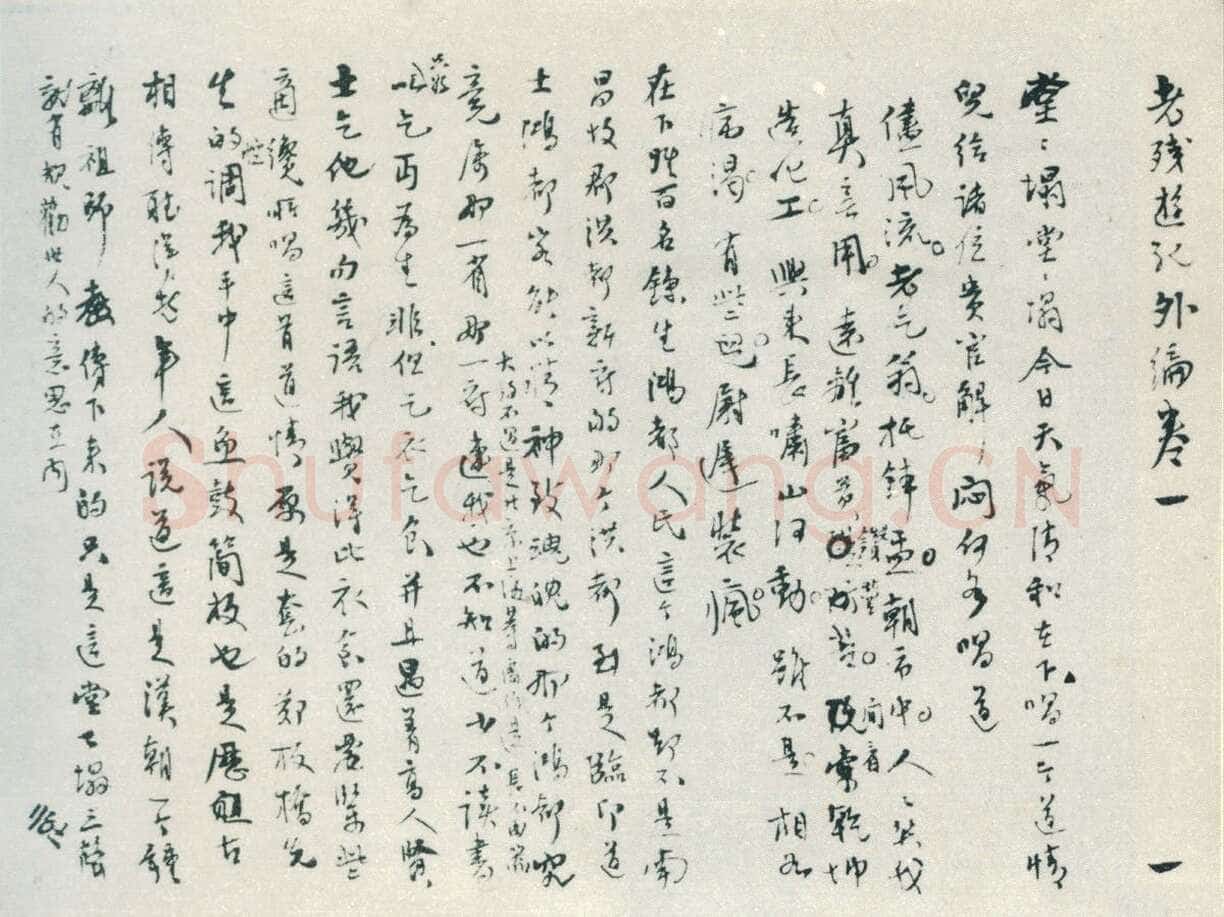 老残遊記外編卷一
一
堂〻塌堂〻塌今日天氣清和在下唱一个道情
兒給諸位貴官解〻悶何如唱道
儘風流。老乞翁。托鉢盂。朝市中。人〻笑我
真無用。遠離富貴鑽營苦。閒看乾坤
造化工。興來長嘯山河動。雖不是相如
病渴。有些兒尉遲裝瘋。
在下姓百名鍊生鴻都人氏這个鴻都却不是南
昌故郡洪都新府的那个洪都到是臨邛道
士鴻都客能以精神致魂魄的那个鴻都究
竟屬那一省那一府連我也不知道少不讀書
大約不過是北京上海等處便是
乞丐為生非但乞衣乞食并且遇着高人賢
士乞他幾句言語我覺得比衣食還要緊些
適纔所唱這首道情原是套的鄭板橋先
生的調我手中這魚鼓簡板也是歷祖古
相傳聽得老年人說道這是漢朝一个鍾
離祖師傳下來的只是這堂〻塌三聲
就有規勸世人的意思在內
Shufawang.CN